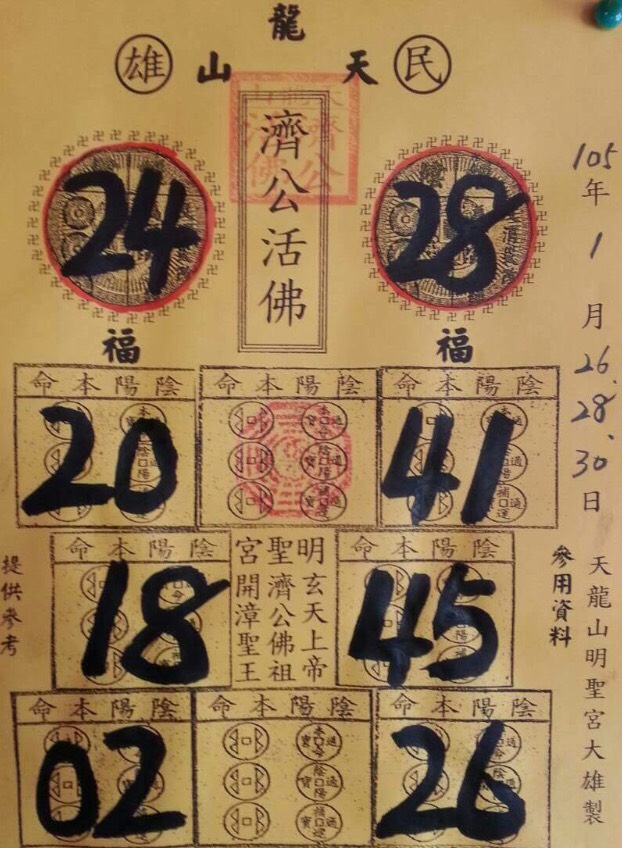 龍
雄 山 天 民
濟公活佛
24
28
福
福
105年1月26.28.30日
命本陽陰
命本陽陰
命本陽陰
20
41
命本陽陰
命本陽陰
18
45
明玄天上帝
聖濟公佛祖
宮開漳聖王
提供參考
參用資料
天龍山明聖宮大雄製
命本陽陰
命本陽陰
命本陽陰
02
26